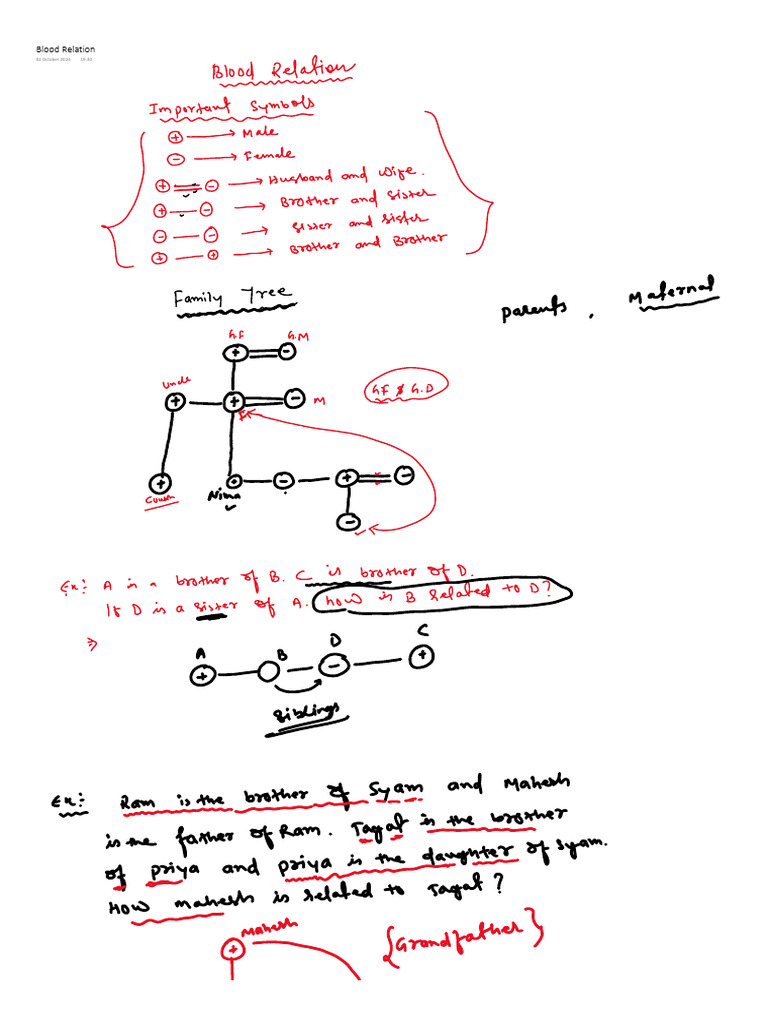 Blood Relation
Blood Relation
Important Symbols
+ → Male
− → Female
+ = − → Husband and Wife.
+ — − → Brother and Sister
− — − → Sister and Sister
+ — + → Brother and Brother
Family Tree
Parents , Maternal
G.F G.M
Uncle
M
G.F & G.D
Cousin
Ex: A is a brother of B. C is brother of D.
If D is a sister of A. How is B related to D?
⇒
A B D C
Siblings
Ex: Ram is the brother of Syam and Mahesh
is the father of Ram. Jagat is the brother
of Priya and Priya is the daughter of Syam.
How Mahesh is related to Jagat?
Mahesh
{Grandfather}